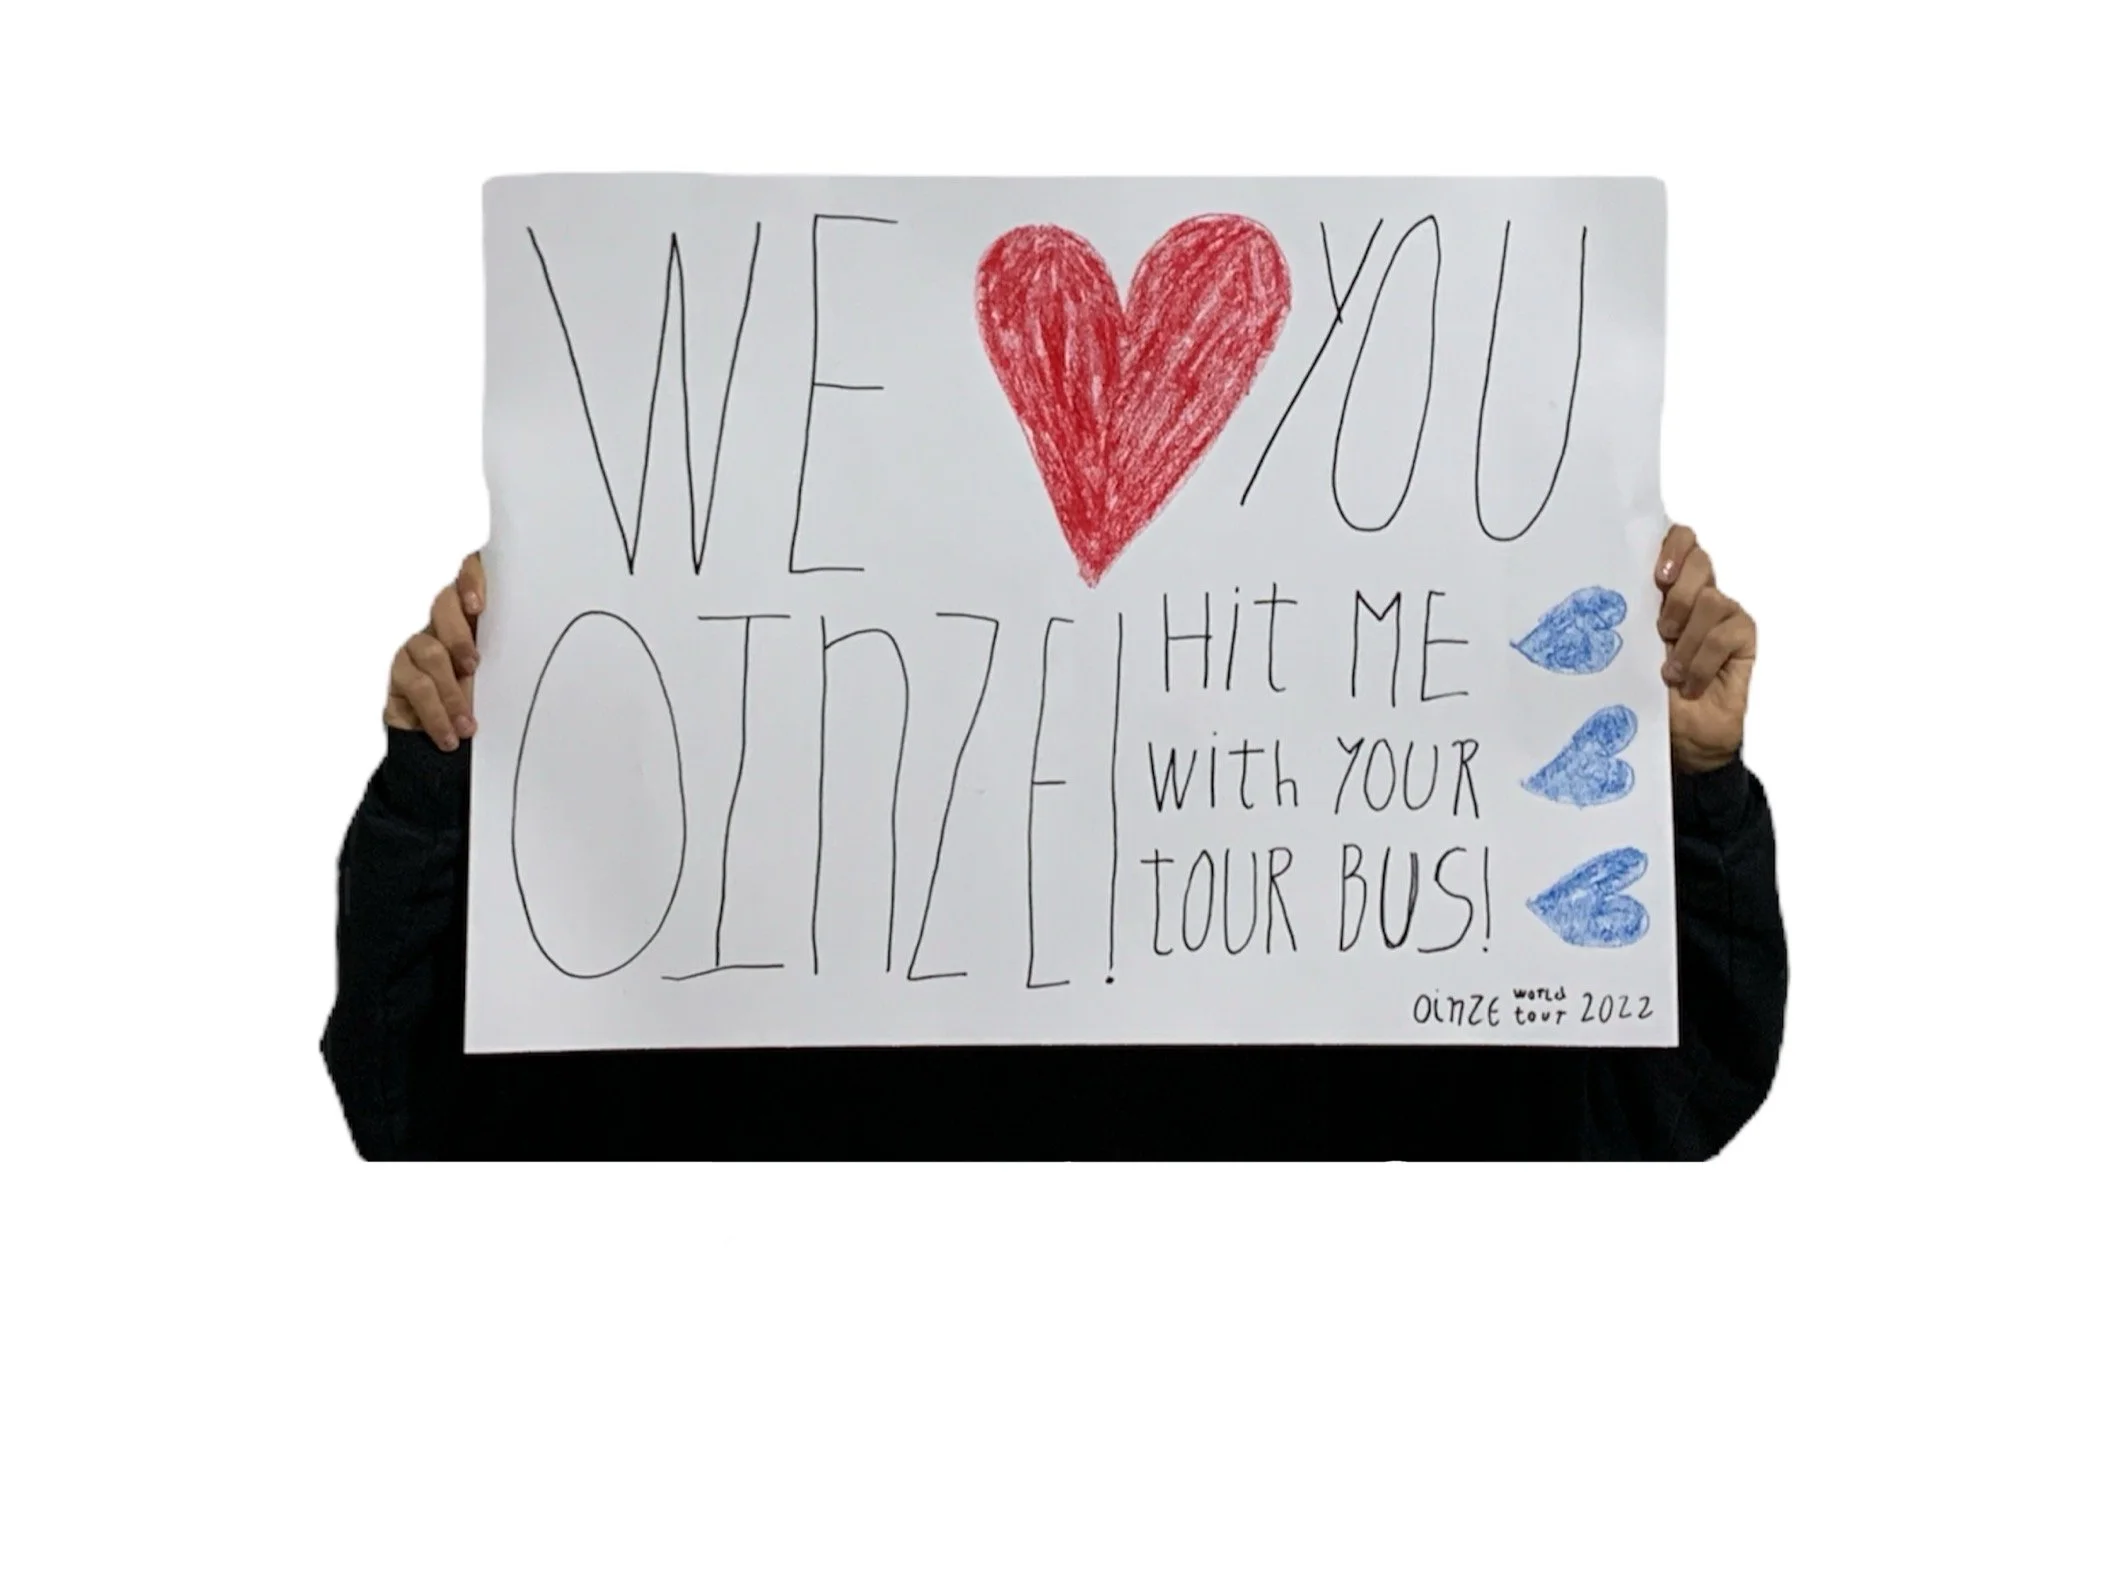 WE ❤ YOU
OINZE!
Hit ME
with YOUR
tOUR BUS!
OinzE world tour 2022